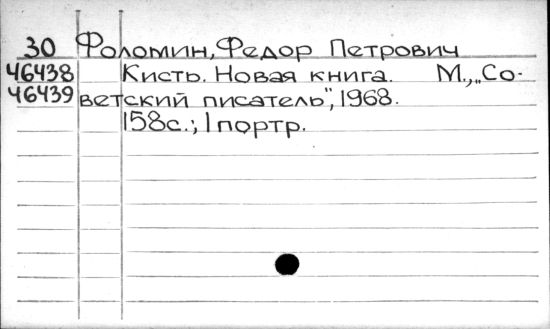 30 Фоломин, Федор Петрович
46438 Кисть. Новая книга. М., „Со-
46439 ветский писатель", 1968.
158с.; 1 портр.